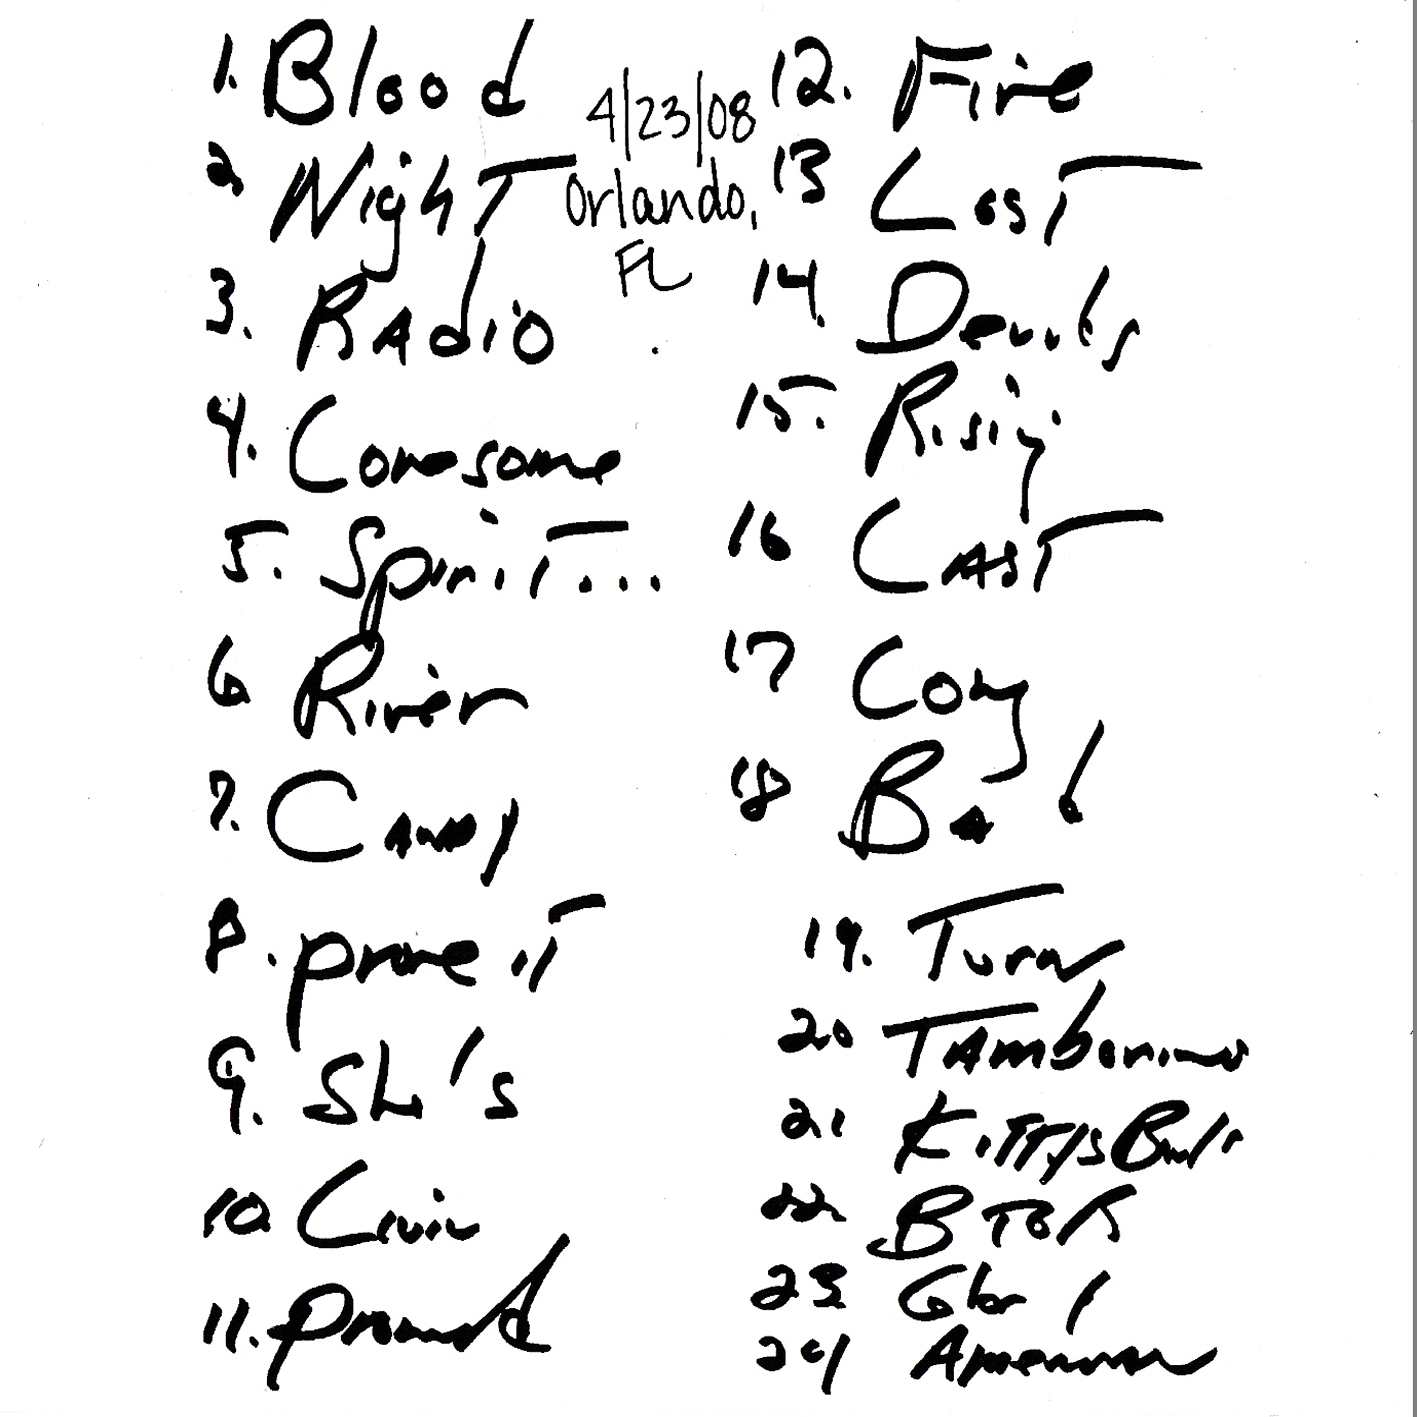 1. Blood
2. Night
3. Radio
4. Lonesome
5. Spirit...
6. River
7. Candy
8. prove it
9. She's
10. Livin
11. promised
4/23/08
Orlando,
FL
12. Fire
13 Lost
14. Devils
15. Rising
16 Last
17 Long
18 Bad
19. Turn
20 Tamborine
21 Kittys Back
22 BTOR
23 Glory
24 American